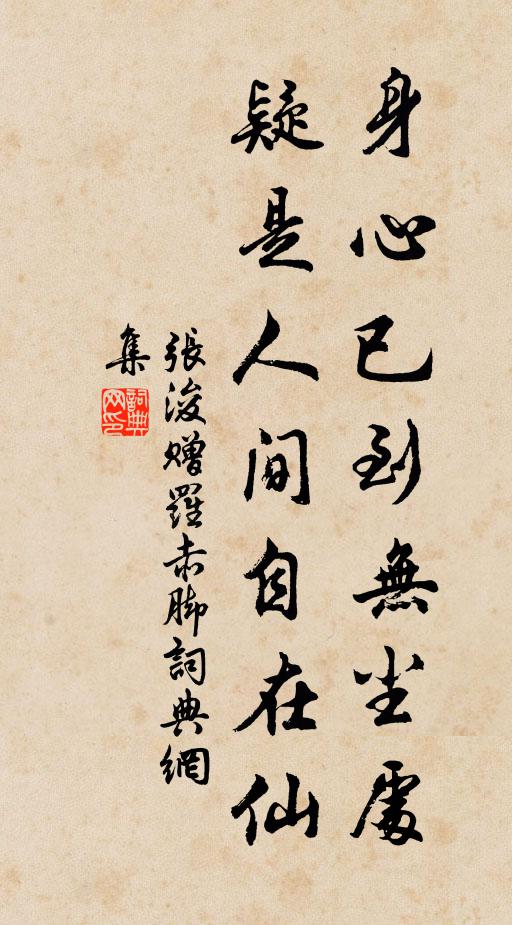 身心已到無尘處
疑是人间自在仙
張浚赠羅赤脚詞典網
集
詞典网印